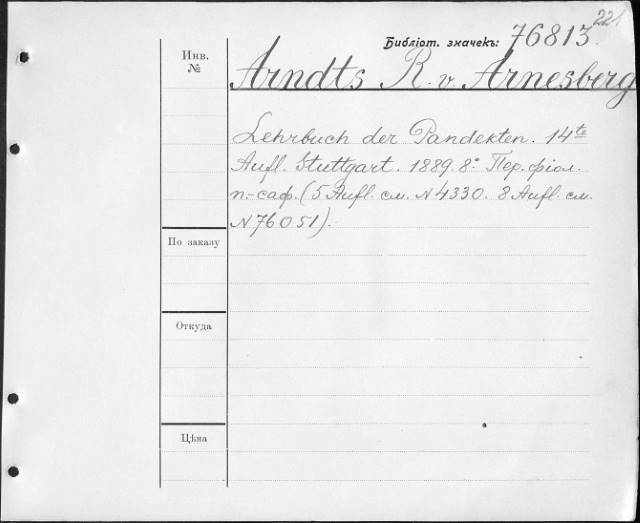 221
Библіот. значекъ: 76813.
Инв. №
Arndts R. v. Arnesberg
Lehrbuch der Pandekten. 14te
Aufl. Stuttgart. 1889. 8º Пер. фіол.
п.-саф. (5 Aufl. см. N 4330. 8 Aufl. см.
N 76051).
По заказу
Откуда
Цѣна